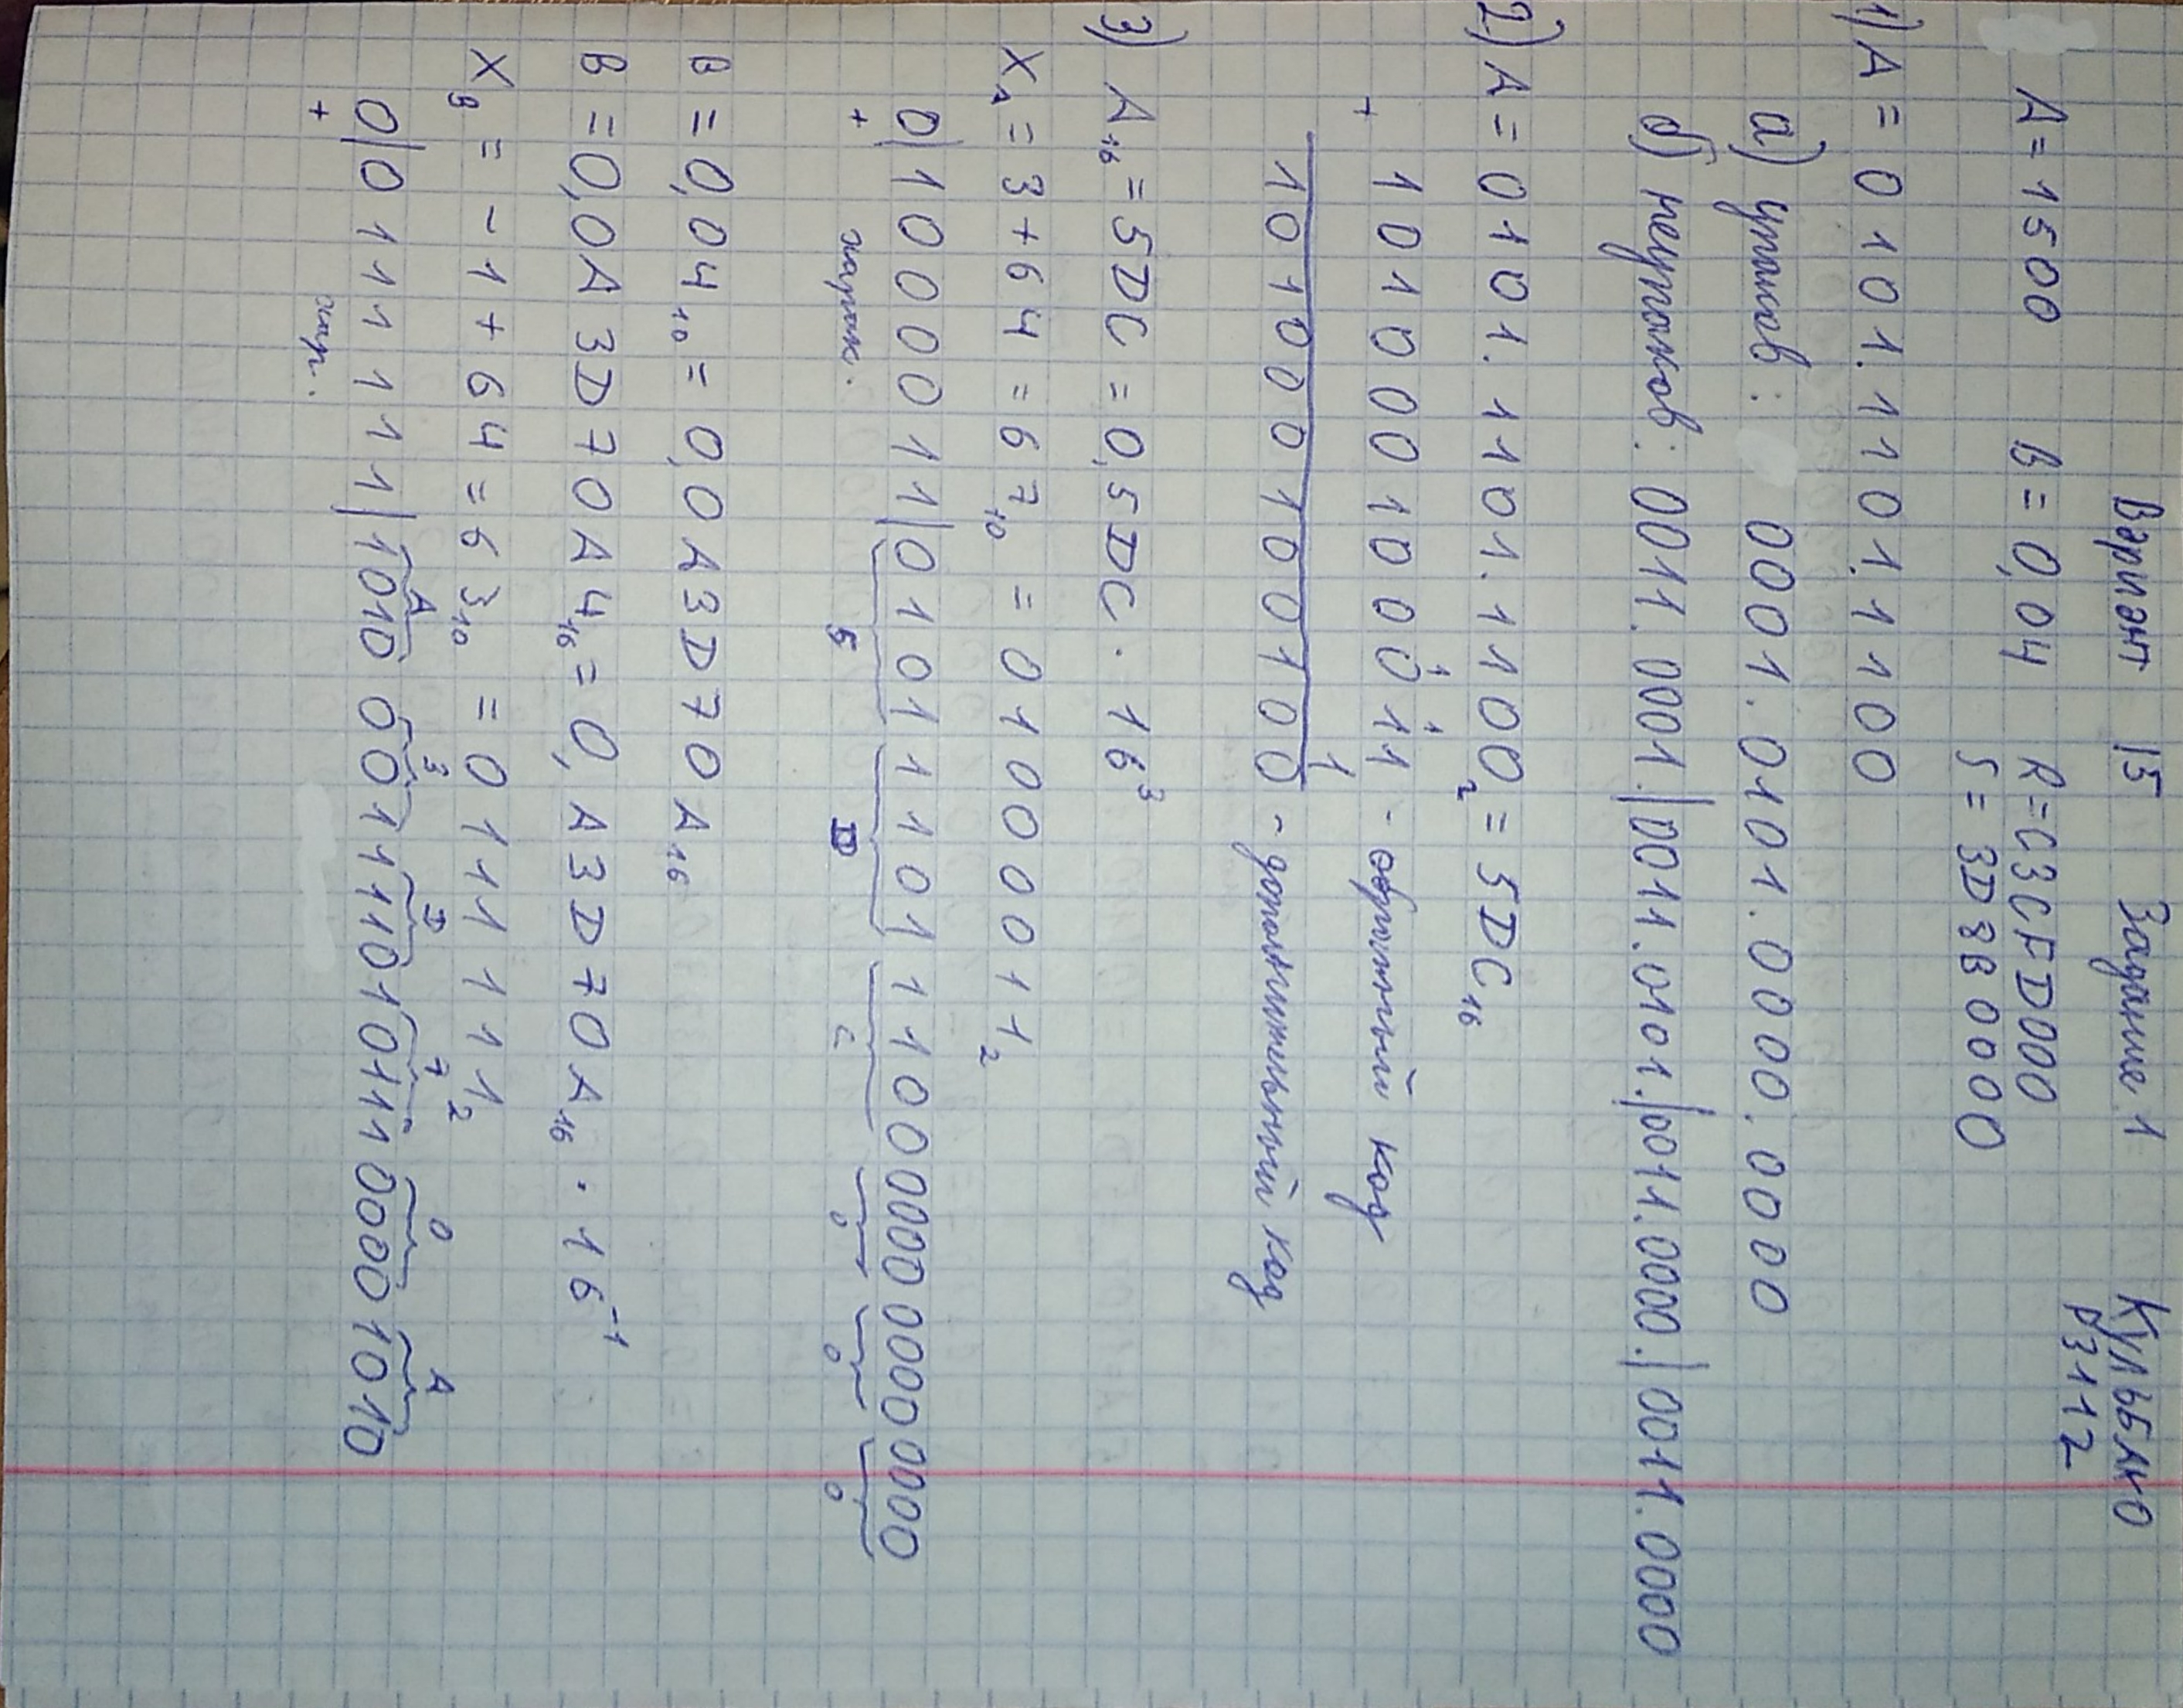 Вариант 15 Задание 1 Кульбако
Р3112
A = 1500 B = 0,04 R = C3CFD000
S = 3D8B0000
1) A = 0101.1101.1100
а) упаков: 0001.0101.0000.0000
б) неупаков: 0011.0001.|0011.0101.|0011.0000.|0011.0000
2) A = 0101.1101.1100₂ = 5DC₁₆
+ 101000100011 - обратный код
1
101000100100 - дополнительный код
3) A₁₆ = 5DC = 0,5DC · 16³
Xₐ = 3 + 64 = 67₁₀ = 01000011₂
0|1000011|0101 1101 1100 0000 0000 0000
+ харак. 5 D C 0 0 0
B = 0,04₁₀ = 0,0A3D70A₁₆
B = 0,0A3D70A4₁₆ = 0,A3D70A₁₆ · 16⁻¹
X_B = -1 + 64 = 63₁₀ = 0111111₂
A 3 D 7 0 A
0|0111111|1010 0011 1101 0111 0000 1010
+ хар.